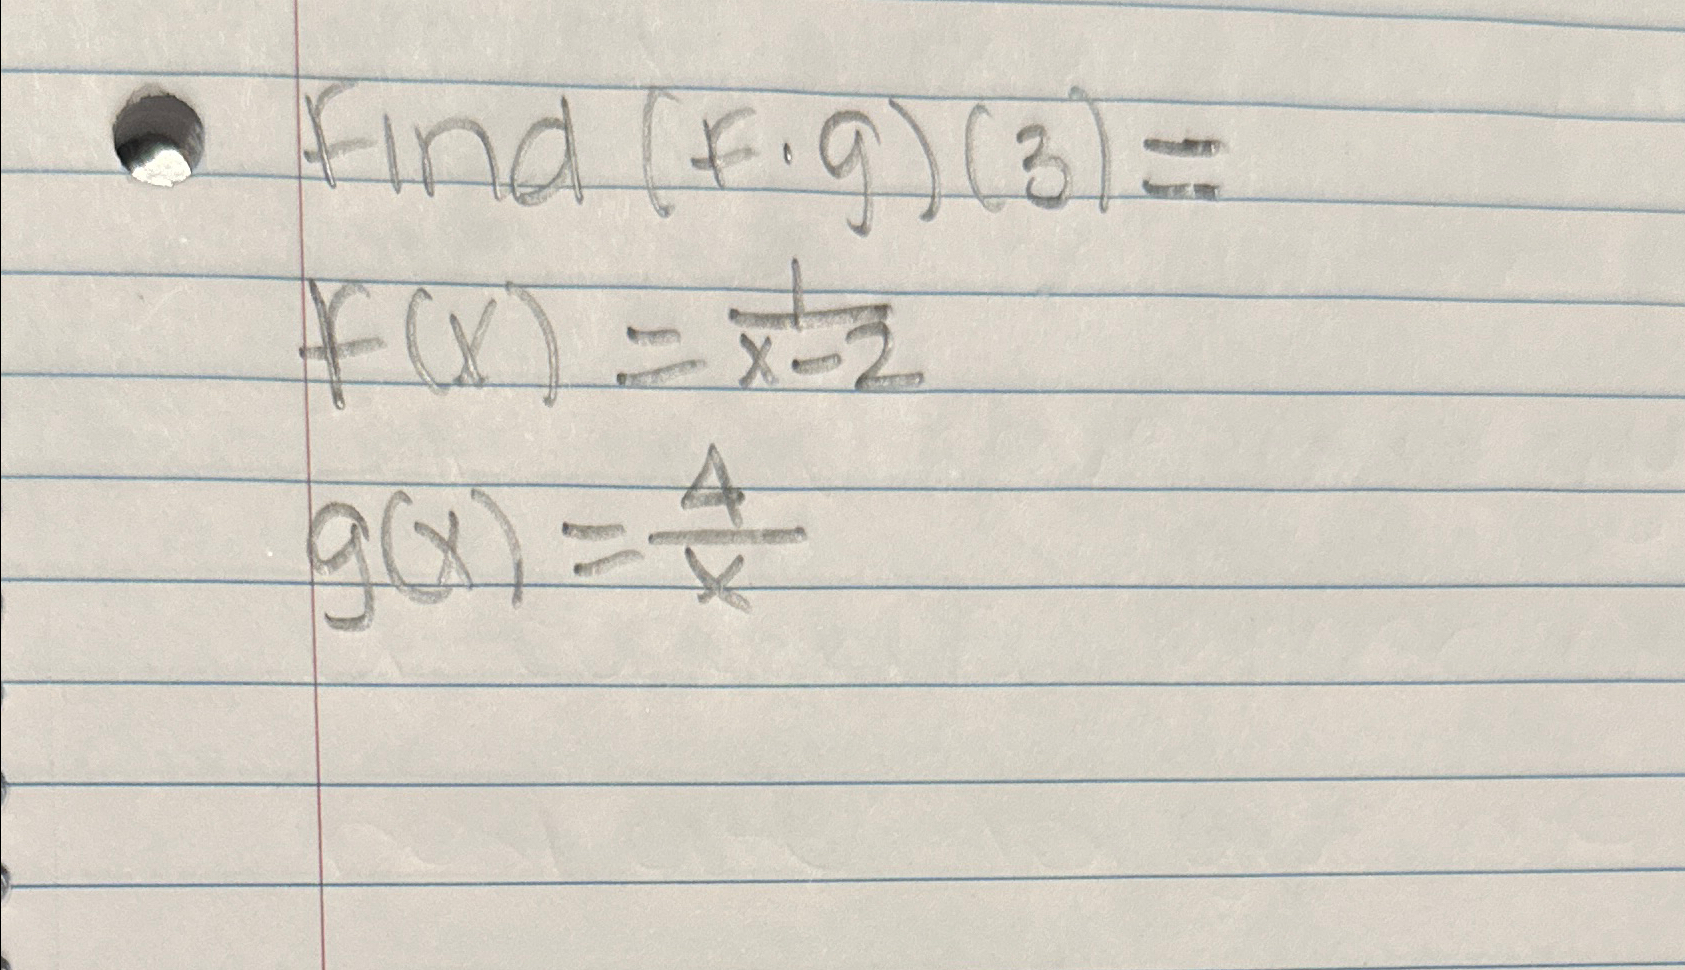 Find (f·g)(3)=
f(x) = 1/(x-2)
g(x) = 4/x